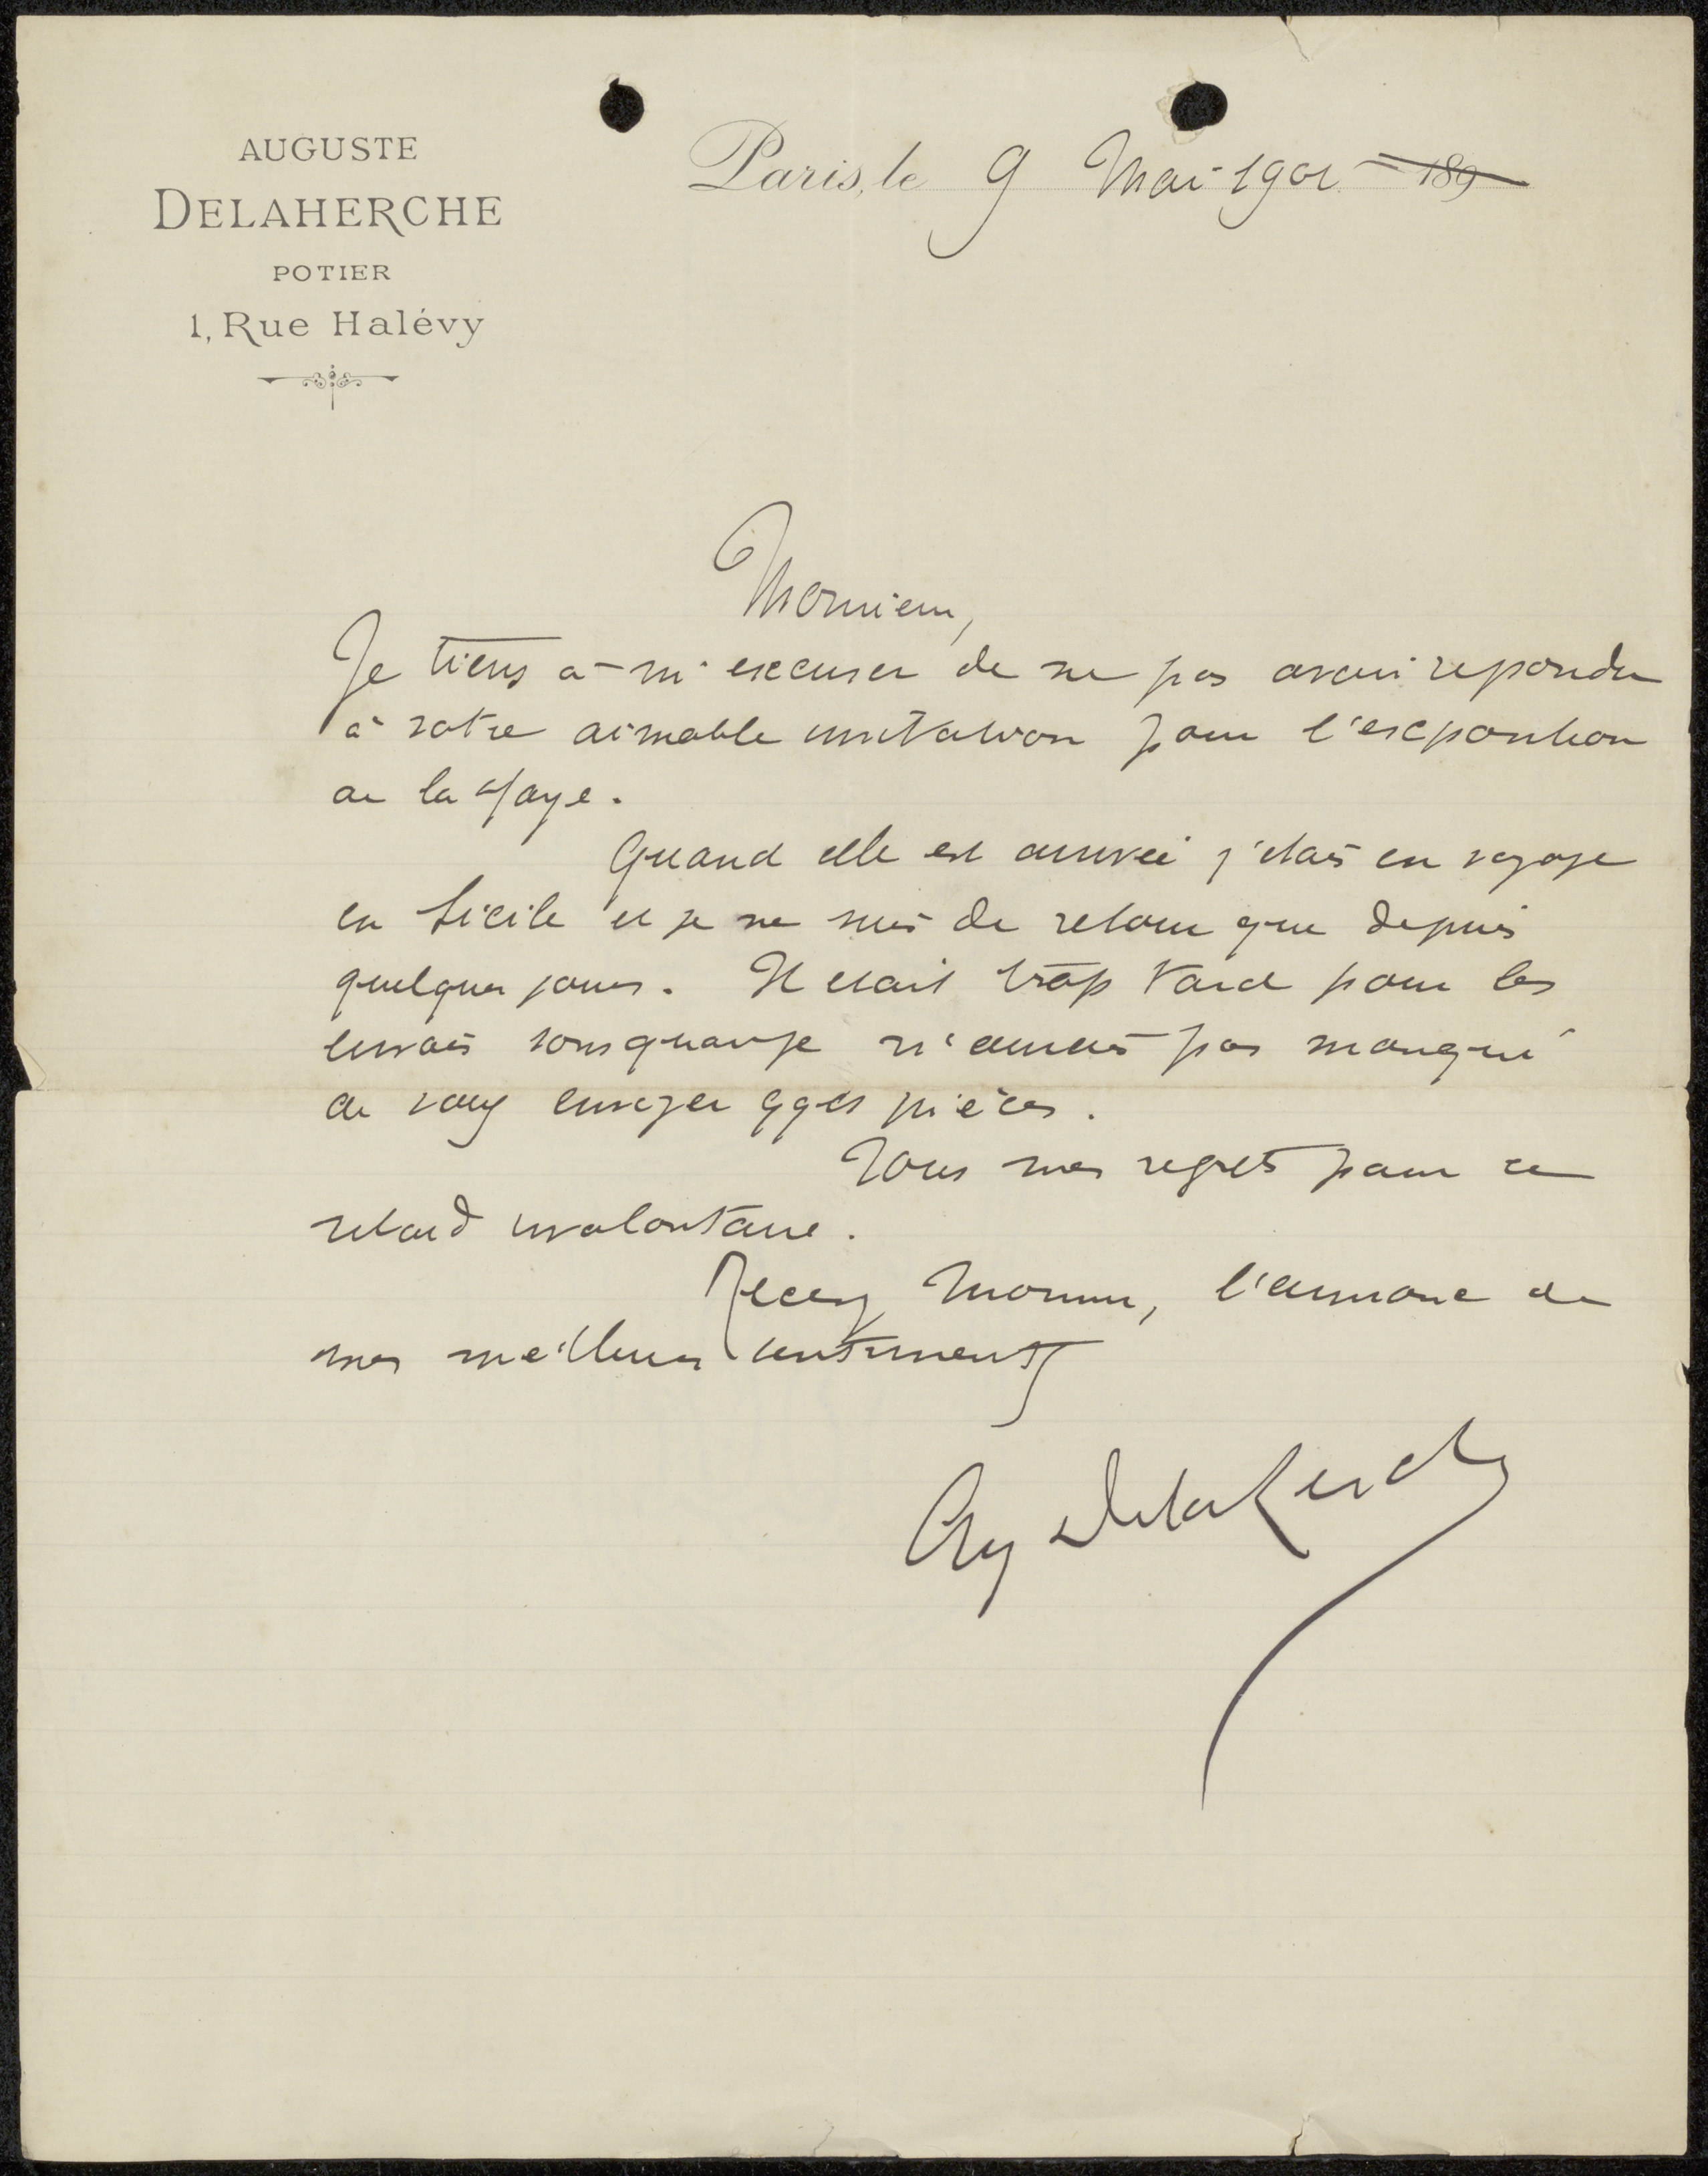 AUGUSTE
DELAHERCHE
POTIER
1, Rue Halévy
Paris, le 9 Mai 1901 189
Monsieur,
Je tiens à m'excuser de ne pas avoir repondu
à votre aimable invitation pour l'exposition
de la Haye.
Quand elle est arrivée j'étais en voyage
en Sicile et je ne suis de retour que depuis
quelques jours. Il était trop tard pour les
envois sans quoi je n'aurais pas manqué
de vous envoyer qques pièces.
Tous mes regrets pour ce
retard involontaire.
Recevez Monsieur, l'assurance de
mes meilleurs sentiments
Aug Delaherche